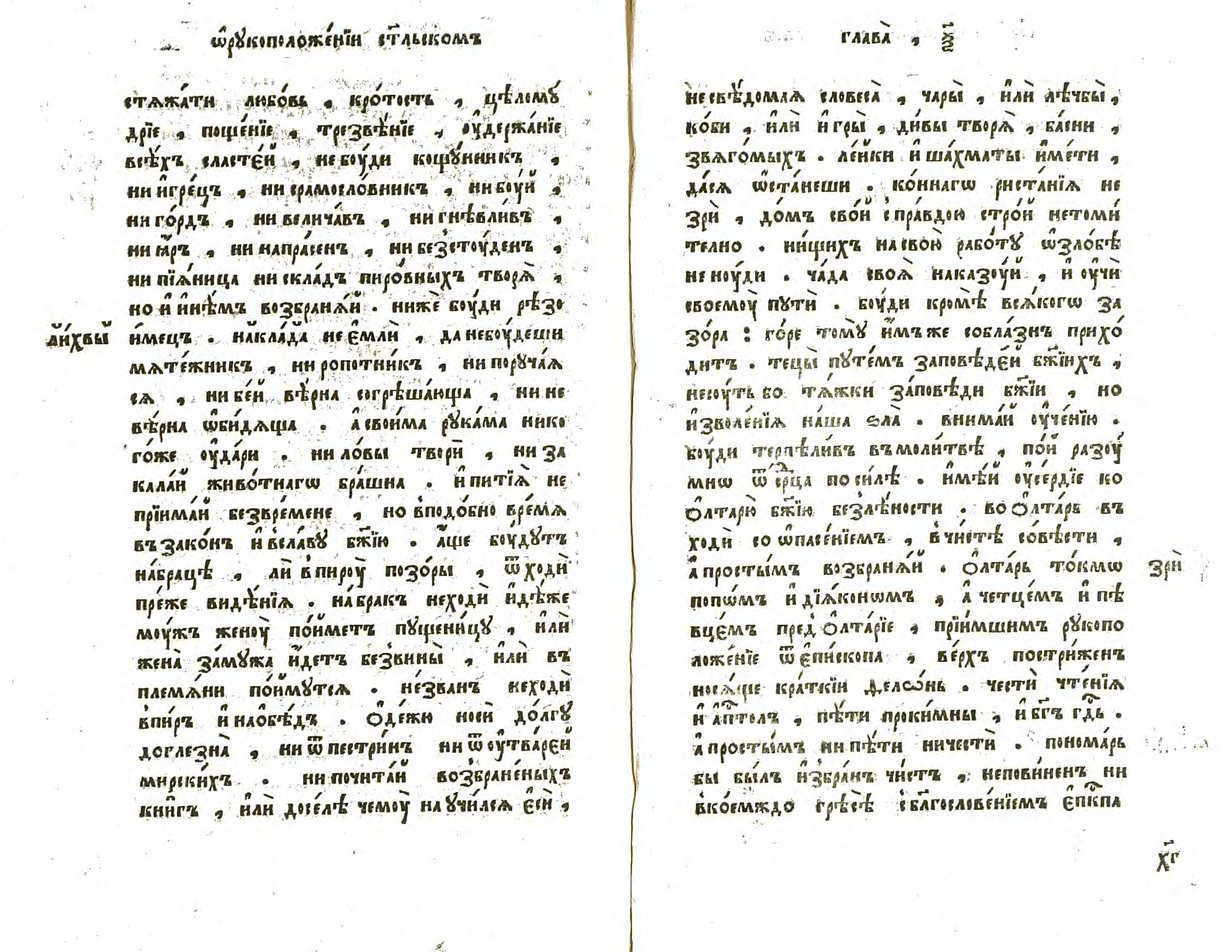 ѿрукоположе́нїи ст҃льскомъ
стѧжа́ти любо́вь , кро́тость , цѣ́лому
дрїе , поще́нїе , трезвѣ́нїе , ѹ҆держа́нїе
всѣ́хъ сласте́й , не бꙋ́ди кощꙋ́нникъ ,
ни и҆гре́цъ , ни срамосло́вникъ , ни бꙋ́й ,
ни го́рдъ , ни велича́въ , ни гнѣ́вливъ ,
ни ꙗ҆́ръ , ни напра́сенъ , ни безстꙋ́денъ ,
ни пїѧ́ница ни скла́дъ пиро́вныхъ творѧ̀ ,
но и҆ и҆нѣ́мъ возбранѧ́й . ниже́ бꙋ́ди рѣзо
а҆и́хвы̆
и҆́мецъ . на́кла́да не є҆́мли , да небꙋ́деши
мѧте́жникъ , ни ропо́тникъ , ни порꙋча́ѧ
сѧ , ни бе́й вѣ́рна согрѣша́юща , ни не
вѣ́рна ѡ҆би́дѧща . а҆ свои́ма рука́ма нико
го́же ѹ҆да́ри . ни ло́вы твори̂ , ни за
кала́й живо́тнагѡ бра́шна . и҆ питїѧ̀ не
прїима́й безвре́мене , но вподо́бно вре́мѧ
въ зако́нъ и҆ всла́ву бж҃їю . а҆́ще бꙋ́дутъ
на́браце̂ , а҆ли̂ впирꙋ̀ позо́ры , ѿ ходи̂
пре́же виде́нїѧ . на́бракъ неходи̂ и҆дѣ́же
мꙋ́жъ женꙋ̀ по́йметъ пꙋщени́цу , и҆ли̂
жена̀ за́мужа и҆́детъ безвины̀ , и҆ли̂ въ
племѧ́ни по́ймутсѧ . не́званъ неходи̂
впи́ръ и҆ на́ѻбе́дъ . Ѻде́жю носи̂ до́лгу
доглезна̀ , ни ѿ пестри́нъ ни ѿ ѹ҆тва́рей
мирски́хъ . ни почита́й возбране́ныхъ
кни́гъ , и҆ли̂ досе́лѣ чемꙋ̀ научи́лсѧ є҆сѝ ,
глава̀ ,
несвѣ́домаѧ словеса̀ , ча́ры , и҆ли̂ лѣ́чбы ,
ко́би , и҆ли̂ и҆гры̀ , ди́вы творѧ̀ , ба́сни ,
звѧго́мыхъ . ле́йки и҆ ша́хматы и҆мѣ́ти ,
да́сѧ ѡ҆ста́неши . ко́ннагѡ риста́нїѧ не
зри̂ , до́мъ сво́й спра́вдою стро́й нетоми́
телно . ни́щихъ на свою̀ рабо́ту ѡ҆зло́бѣ
не нꙋ́ди . ча́да своѧ̀ наказꙋ́й , и҆ ѹ҆чи̂
своемꙋ̀ пути̂ . бꙋ́ди кромѣ̀ всѧ́когѡ за
зо́ра : го́ре то́му и҆́мъже собла́знъ прихо́
дитъ . тецы̀ путе́мъ за́повѣде́й бж҃їихъ ,
несꙋ́ть бо тѧ́жки за́повѣди бж҃їи , но
и҆зволе́нїѧ на́ша ѕла̀ . внима́й ѹ҆че́нїю .
бꙋ́ди терпѣли́въ въ моли́твѣ , по́й разꙋ́
мнѡ ѿ ср҃ца по си́лѣ . и҆мѣ́й ѹ҆се́рдїе ко
Ѻлтарю̀ бж҃їю безлѣ́ности . во Ѻлта́рь въ
ходи̂ со ѡ҆пасе́нїемъ , вчи́стѣ со́вѣсти ,
а҆ просты́мъ возбранѧ́й . Ѻлта́рь то́кмѡ
зри̂
попѡ́мъ и҆ дїѧ́конѡмъ , а҆ четце́мъ и҆ пѣ
вце́мъ пред Ѻлта́рїе , прїи́мшимъ рукопо
ложе́нїе ѿ є҆пи́скопа , ве́рхъ постри́женъ
носѧ́ще кра́ткїи фелѡ́нь . чести̂ чте́нїѧ
и҆ а҆пⷭ҇толъ , пѣ́ти проки́мны , и҆ бг҃ъ гдⷭ҇ь .
а҆ просты́мъ ни пѣ́ти ничести̂ . понома́рь
бы бы́лъ и҆збра́нъ чи́стъ , непови́ненъ ни
вкое́мждо грѣсѣ̀ сблагослове́нїемъ є҆пⷭ҇кпа
х҃г